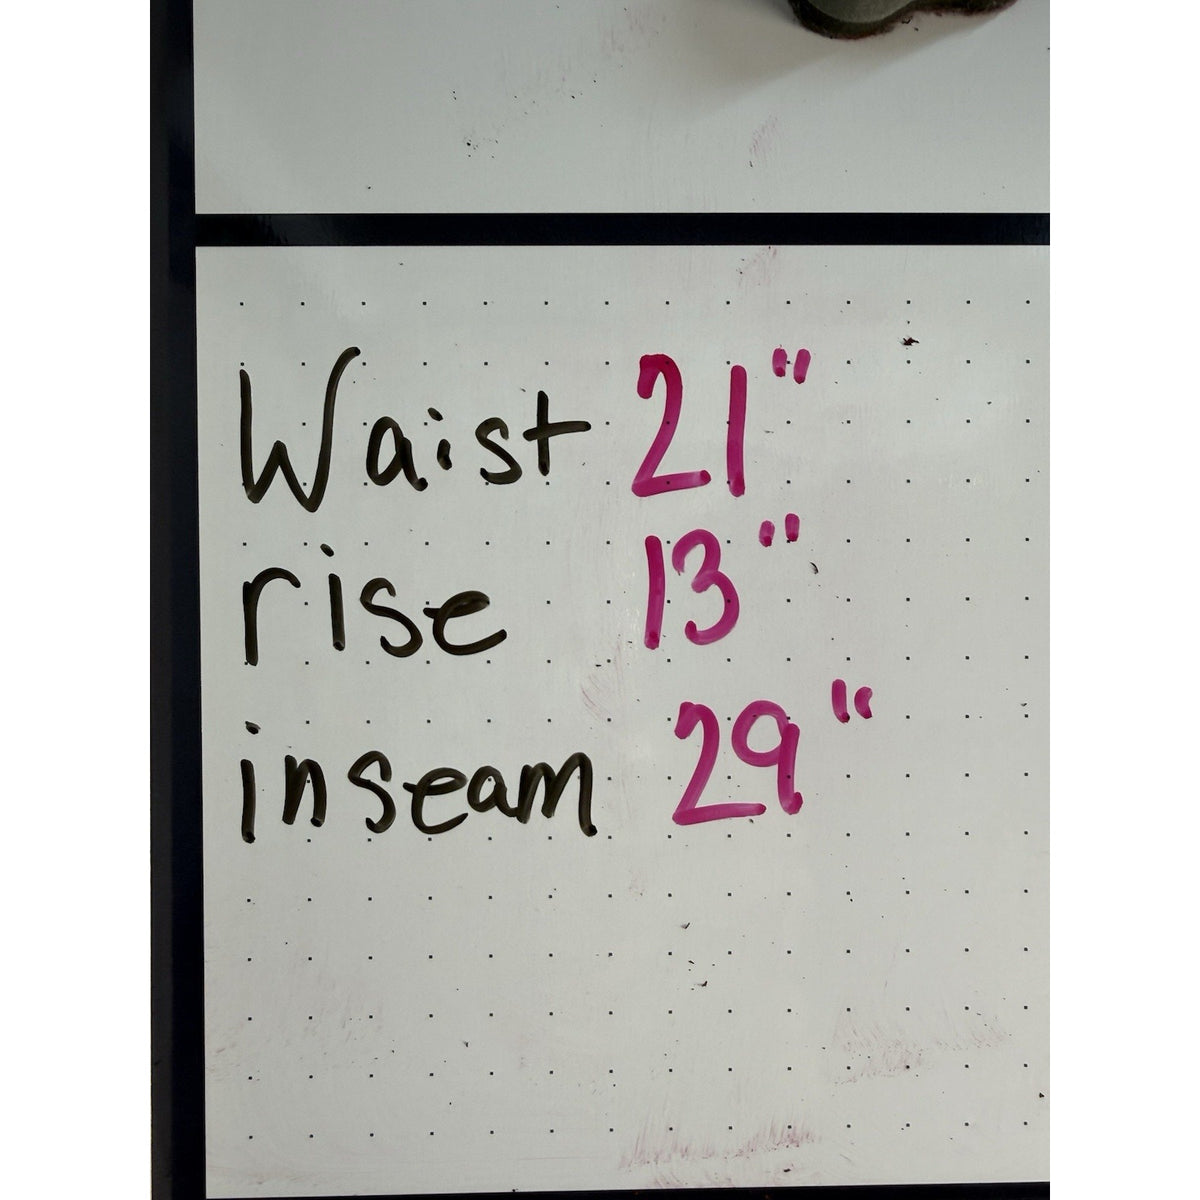 Waist 21"
rise 13"
inseam 29"